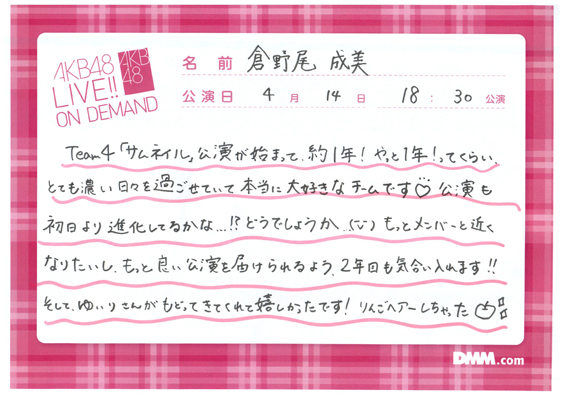 AKB48
LIVE!!
ON DEMAND
AKB
48
名前 倉野尾 成美
公演日 4月 14日 18:30公演
Team4「サムネイル」公演が始まって、約1年!やっと1年!ってくらい、
とても濃い日々を過ごせていて本当に大好きなチームです♡公演も
初日より進化してるかな…!?どうでしょうか…もっとメンバーと近く
なりたいし、もっと良い公演を届けられるよう、2年目も気合い入れます!!
そして、ゆいりさんがもどってきてくれて嬉しかったです!りんごヘアーしちゃった
DMM.com